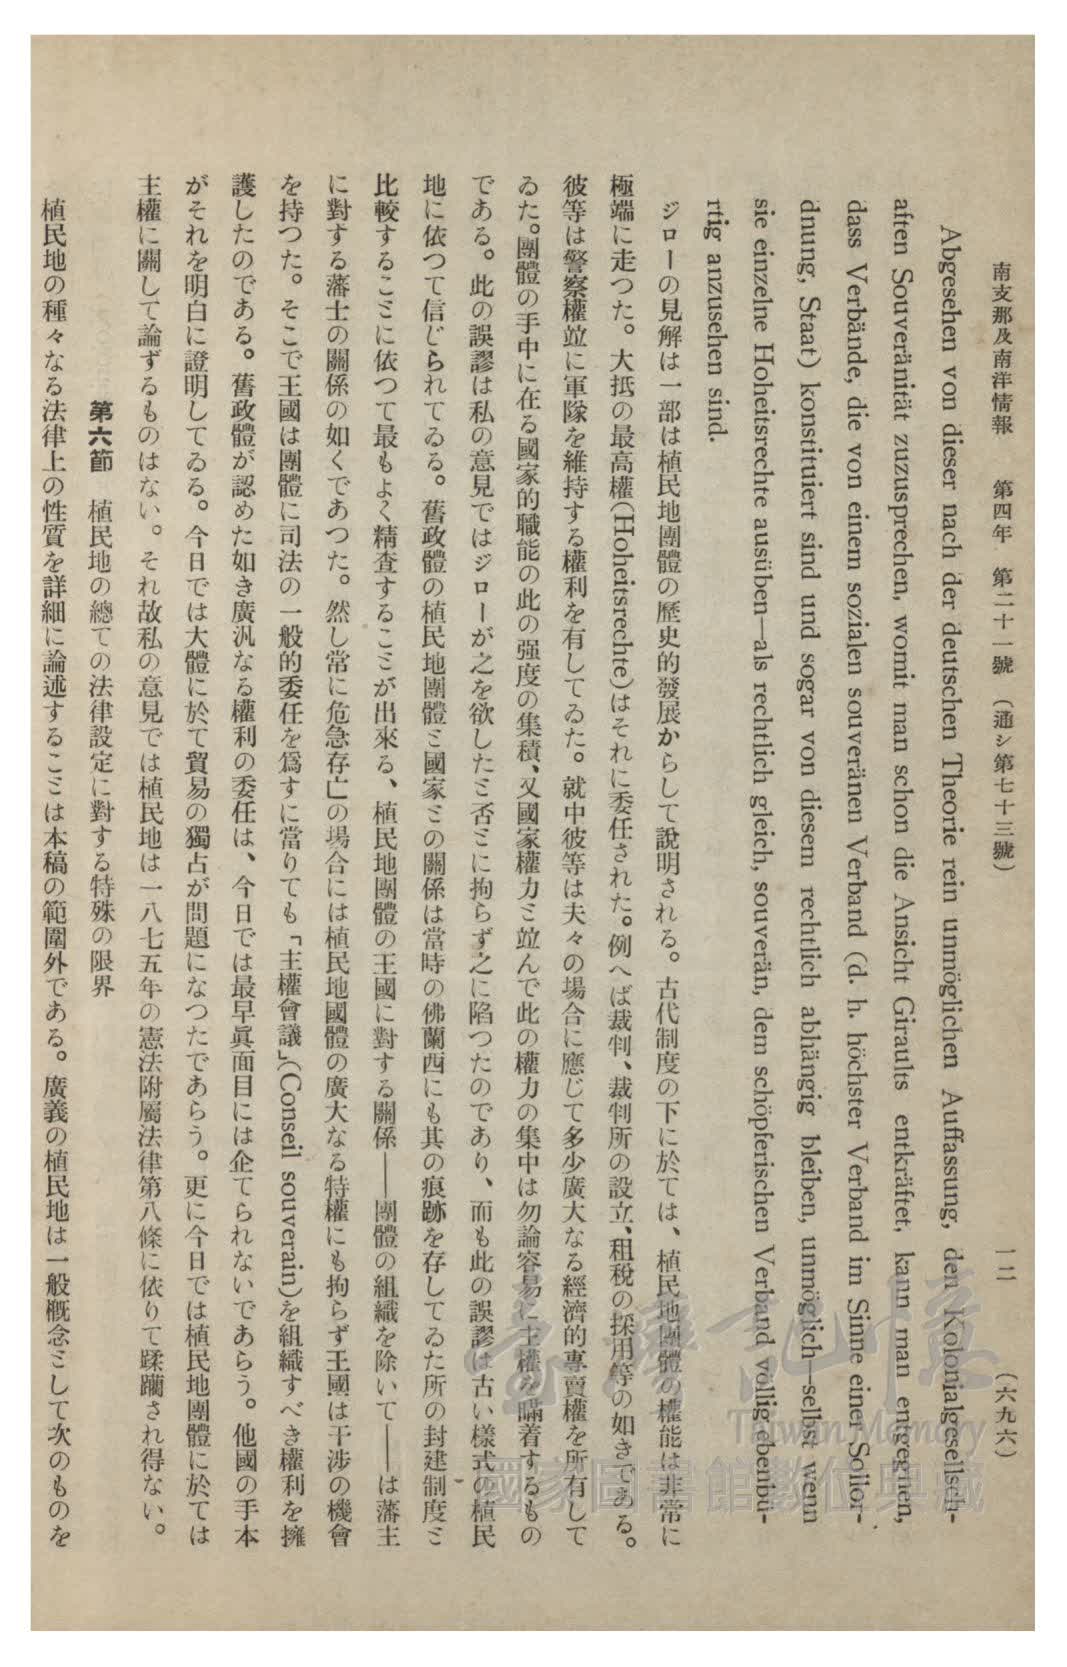 南支那及南洋情報　第四年　第二十一號　(通シ第七十三號)　一二　(六九六)
Abgesehen von dieser nach der deutschen Theorie rein unmöglichen Auffassung, den Kolonialgesellsch-
aften Souveränität zuzusprechen, womit man schon die Ansicht Giraults entkräftet, kann man engegnen,
dass Verbände, die von einem sozialen souveränen Verband (d. h. höchster Verband im Sinne einer Sollor-
dnung, Staat) konstituiert sind und sogar von diesem rechtlich abhängig bleiben, unmöglich—selbst wenn
sie einzelne Hoheitsrechte ausüben—als rechtlich gleich, souverän, dem schöpferischen Verband völlig ebenbü-
rtig anzusehen sind.
ジローの見解は一部は植民地團體の歷史的發展からして說明される。古代制度の下に於ては、植民地團體の權能は非常に
極端に走つた。大抵の最高權(Hoheitsrechte)はそれに委任された。例へば裁判、裁判所の設立、租稅の採用等の如きである。
彼等は警察權竝に軍隊を維持する權利を有してゐた。就中彼等は夫々の場合に應じて多少廣大なる經濟的專賣權を所有して
ゐた。團體の手中に在る國家的職能の此の强度の集積、又國家權力ミ竝んで此の權力の集中は勿論容易に主權を瞞着するもの
である。此の誤謬は私の意見ではジローが之を欲したミ否ミに拘らず之に陷つたのであり、而も此の誤謬は古い樣式の植民
地に依つて信じられてゐる。舊政體の植民地團體ミ國家ミの關係は當時の佛蘭西にも其の痕跡を存してゐた所の封建制度ミ
比較するこミに依つて最もよく精査するこミが出來る、植民地團體の王國に對する關係——團體の組織を除いて——は藩主
に對する藩士の關係の如くであつた。然し常に危急存亡の場合には植民地國體の廣大なる特權にも拘らず王國は干涉の機會
を持つた。そこで王國は團體に司法の一般的委任を爲すに當りても「主權會議」(Conseil souverain)を組織すべき權利を擁
護したのである。舊政體が認めた如き廣汎なる權利の委任は、今日では最早眞面目には企てられないであらう。他國の手本
がそれを明白に證明してゐる。今日では大體に於て貿易の獨占が問題になつたであらう。更に今日では植民地團體に於ては
主權に關して論ずるものはない。それ故私の意見では植民地は一八七五年の憲法附屬法律第八條に依りて蹂躙され得ない。
第六節　植民地の總ての法律設定に對する特殊の限界
植民地の種々なる法律上の性質を詳細に論述するこミは本稿の範圍外である。廣義の植民地は一般槪念ミして次のものを
臺灣記憶
Taiwan Memory
國家圖書館數位典藏